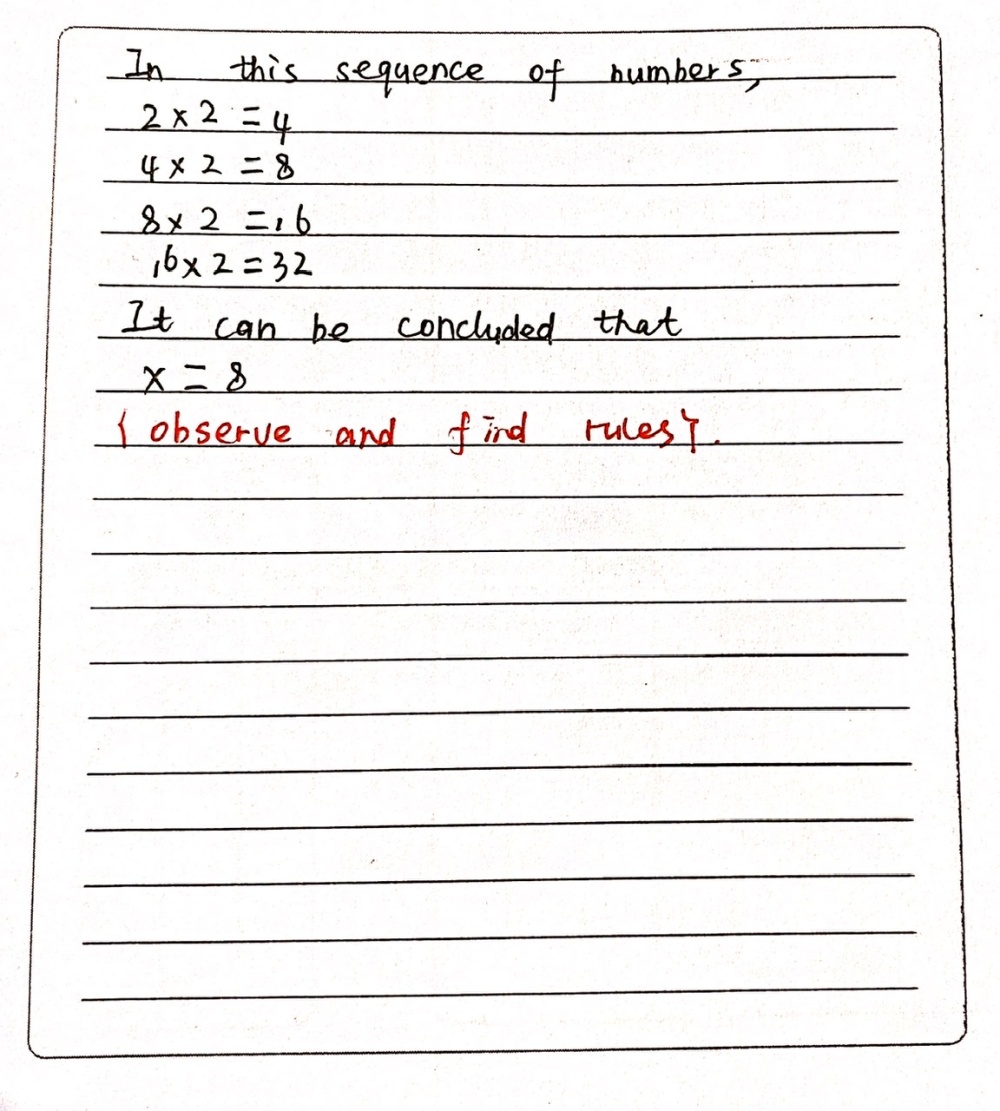 In this sequence of numbers,
2 × 2 = 4
4 × 2 = 8
8 × 2 = 16
16 × 2 = 32
It can be concluded that
x = 8
{ observe and find rules}.